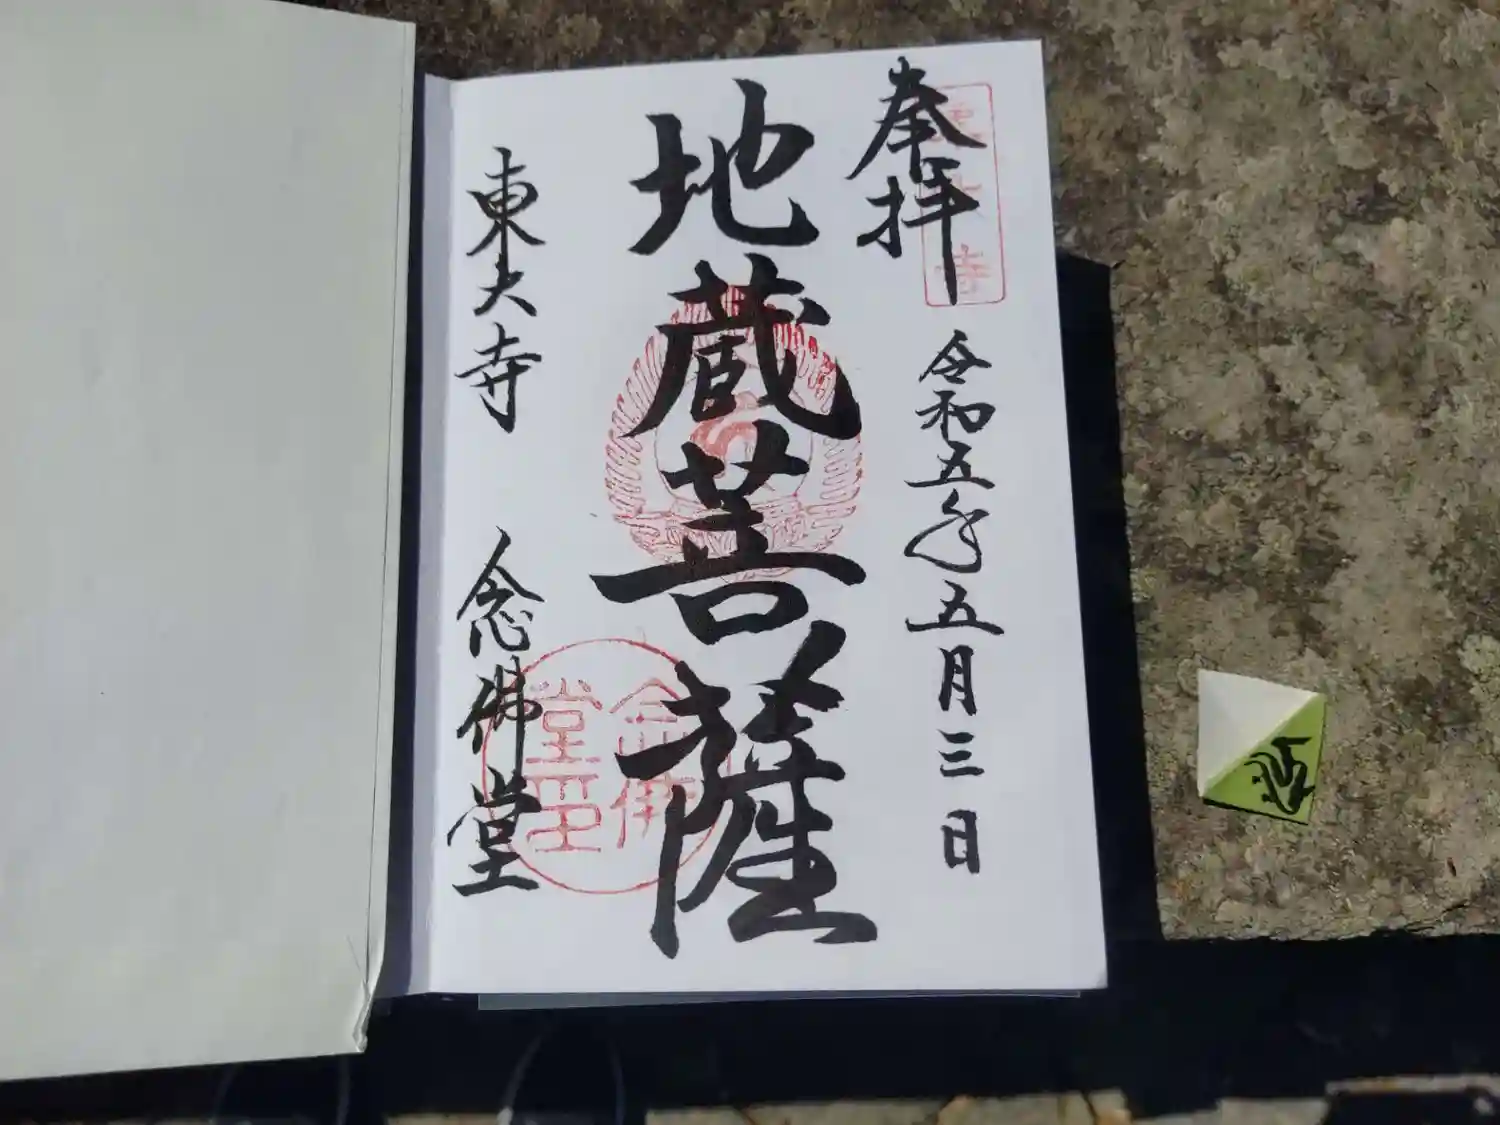 奉拝
令和五年五月三日
地蔵菩薩
東大寺
念佛堂
東大寺
念佛堂印